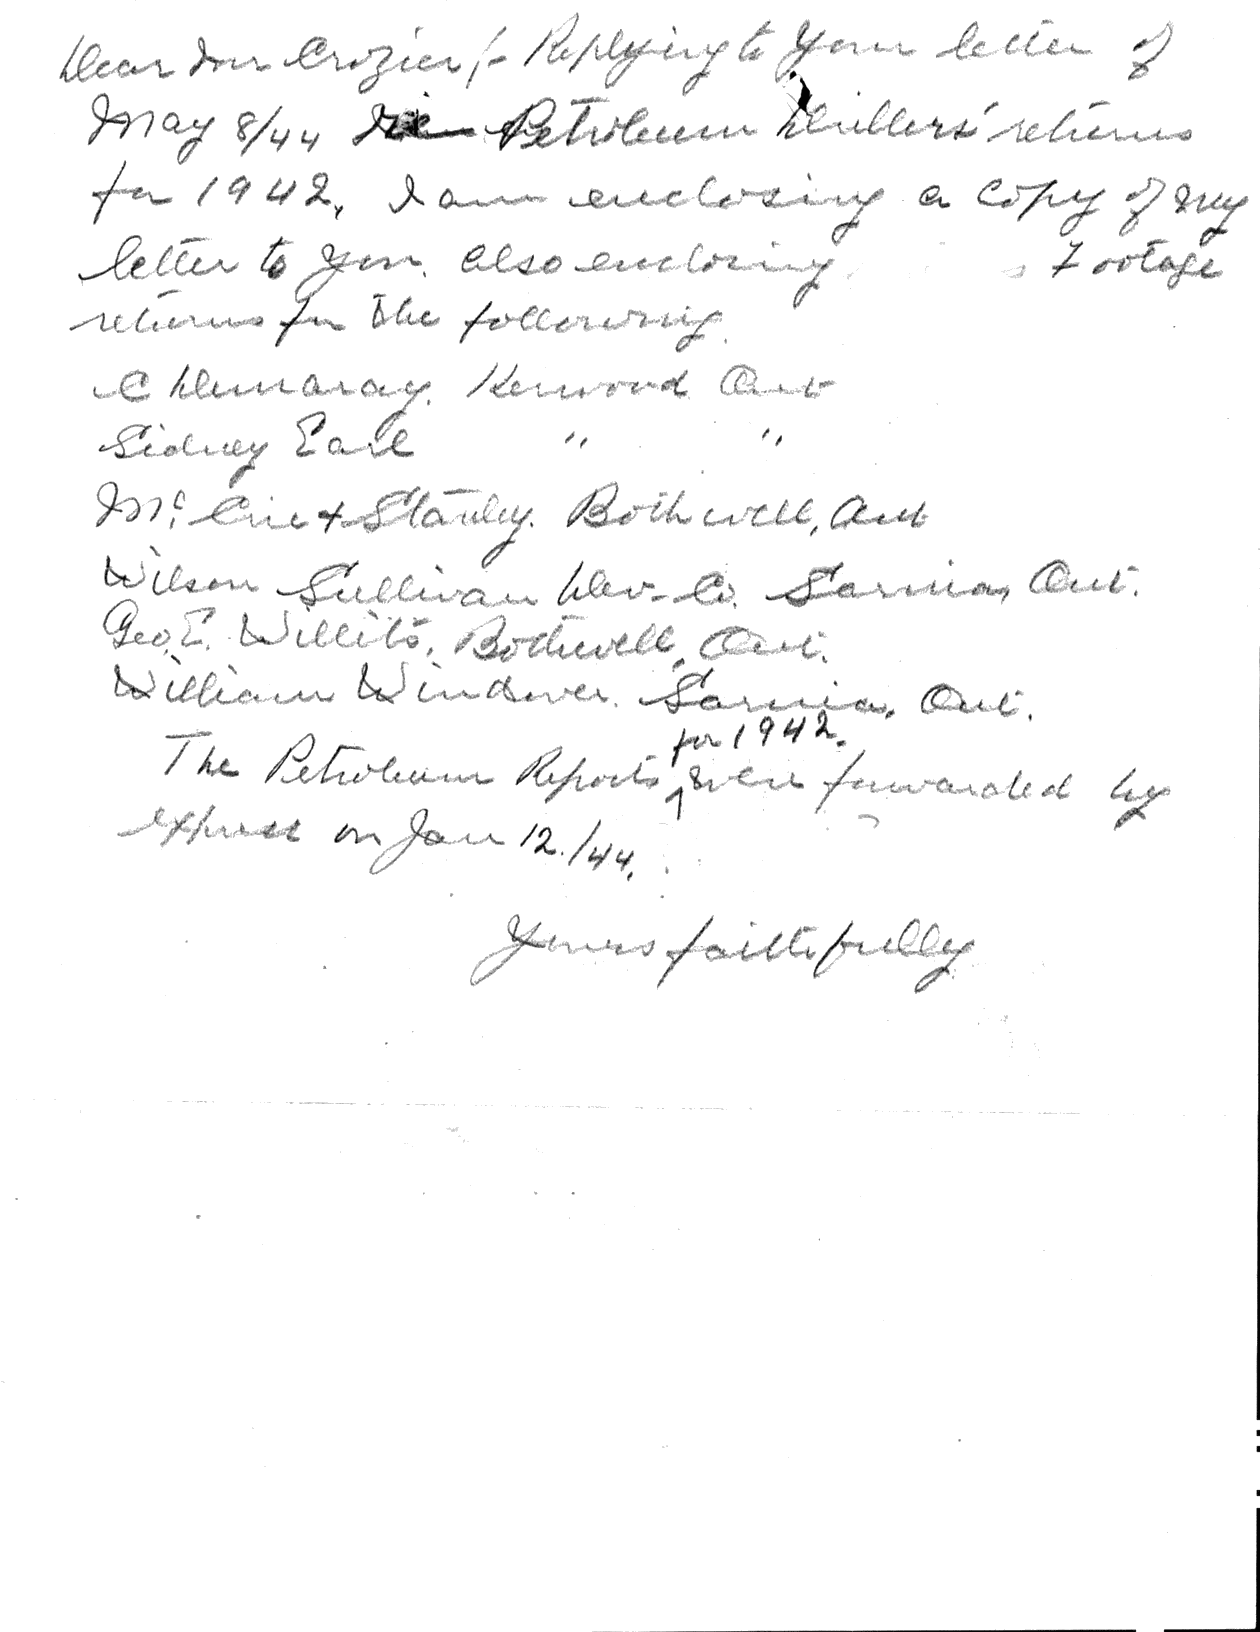 Dear Mr Crozier/- Replying to your letter of
May 8/44 Petroleum Drillers' returns
for 1942, I am enclosing a copy of my
letter to you. Also enclosing Footage
returns for the following.
C Demaray. Kerwood Ont
Sidney Earl " "
Mc. Crie & Stanley. Bothwell, Ont
Wilson Sullivan Dev. Co. Sarnia, Ont.
Geo. E. Willits, Bothwell, Ont.
William Windover. Sarnia, Ont.
for 1942.
The Petroleum Reports were forwarded by
express on Jan 12./44.
Yours faithfully